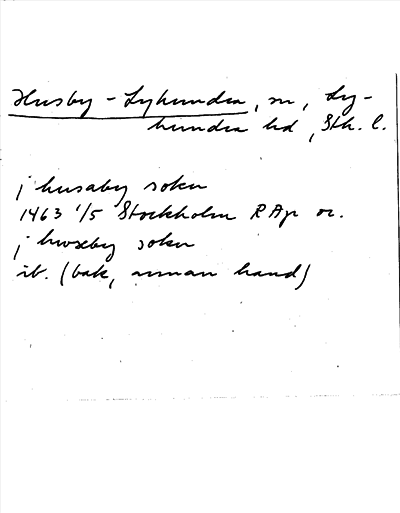 Husby-Lyhundra, sn, Ly-
hundra hd, Sth. l.
j husaby sokn
1463 1/5 Stockholm RAp or.
j hwseby sokn
ib. (bak, annan hand)